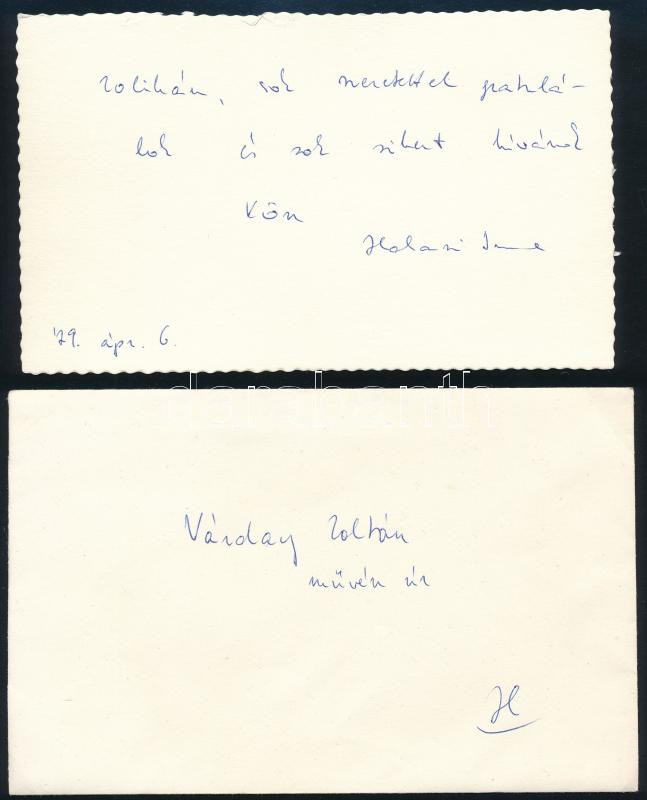 Zolikám, sok szeretettel gratulá-
lok és sok sikert kívánok
Halasi Imre
'79. ápr. 6.
darabanth
Várday Zoltán
művész úr
H